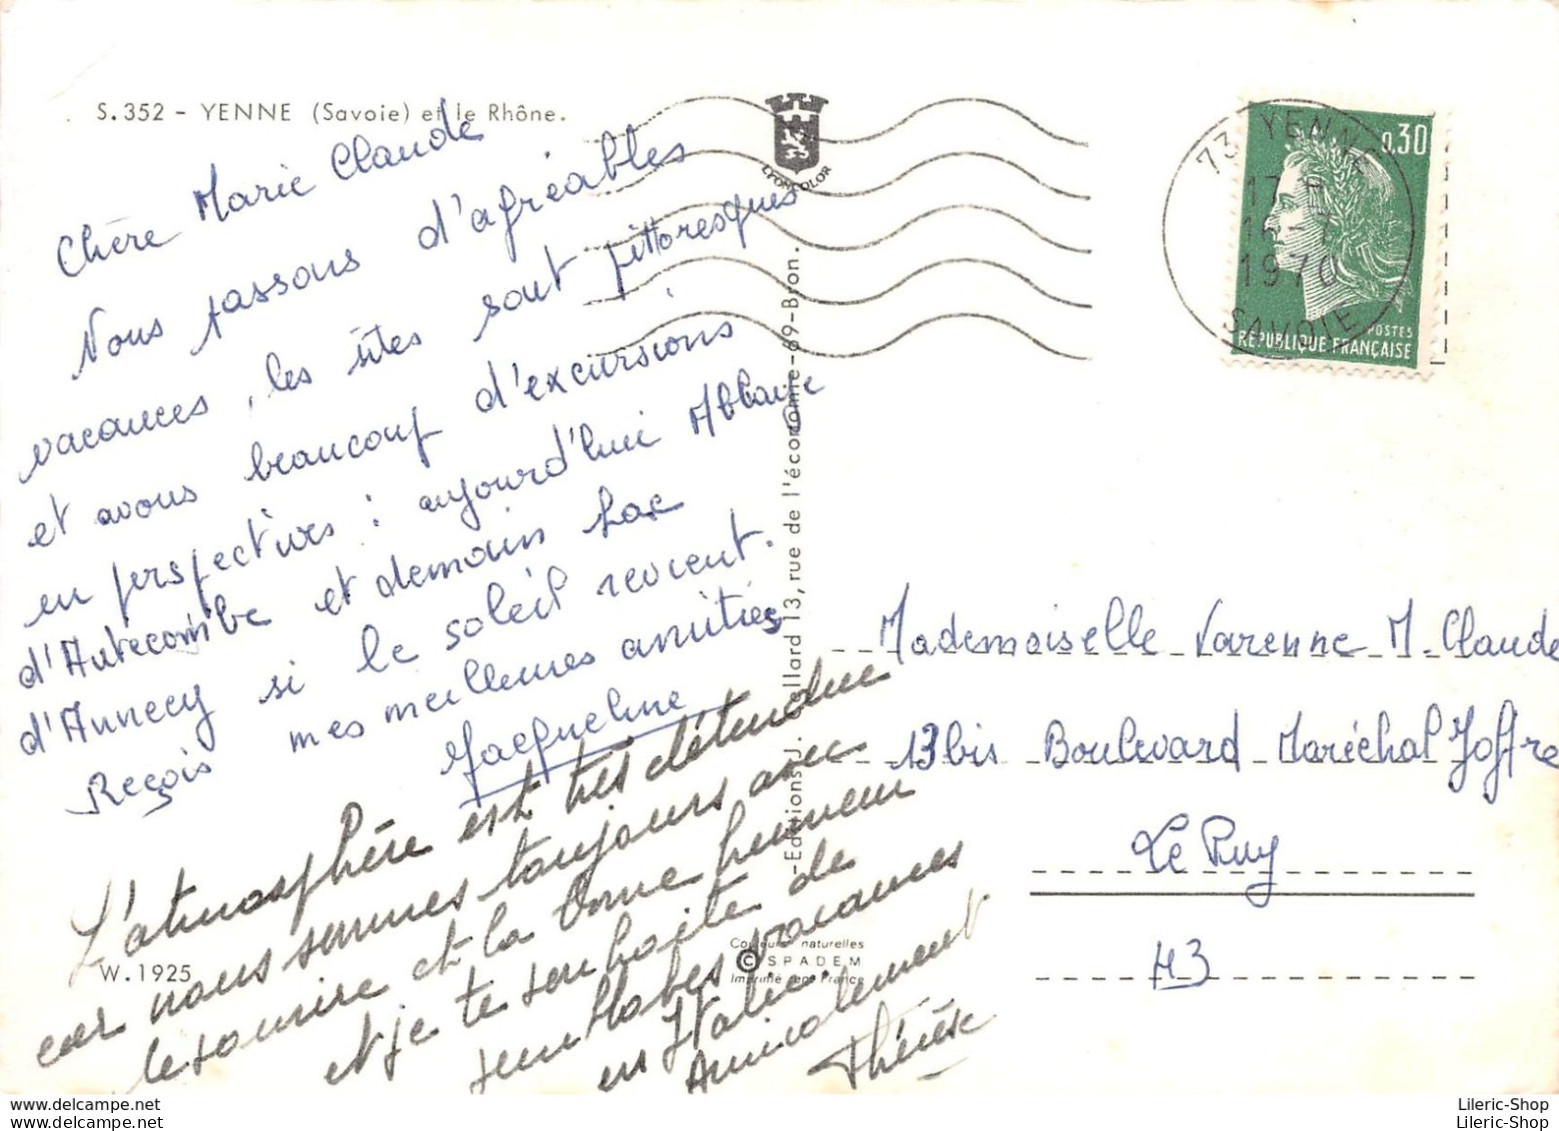 S.352 - YENNE (Savoie) et le Rhône.
Chère Marie Claude
Nous passons d'agréables
vacances, les sites sont pittoresques
et avons beaucoup d'excursions
en perspectives : aujourd'hui Abbaye
d'Autecombe et demain Lac
d'Annecy si le soleil revient.
Reçois mes meilleures amitiés
Jacqueline
L'atmosphère est très détendue
car nous sommes toujours avec
le sourire et la bonne humeur
et je te souhaite de
semblables vacances
en Italie.
Amicalement
Thérèse
W.1925
LYONCOLOR
-Editions J. 13, rue de l'économie-69-Bron.
Couleurs naturelles
© SPADEM
Imprimé en France
73 YENNE
1970
SAVOIE
0,30
POSTES
RÉPUBLIQUE FRANÇAISE
Mademoiselle Varenne M. Claude
13bis Boulevard Maréchal Joffre
Le Puy
43
www.jacquelor.com
www.jacquelor.com
Lileric-Shop
Lileric-Shop